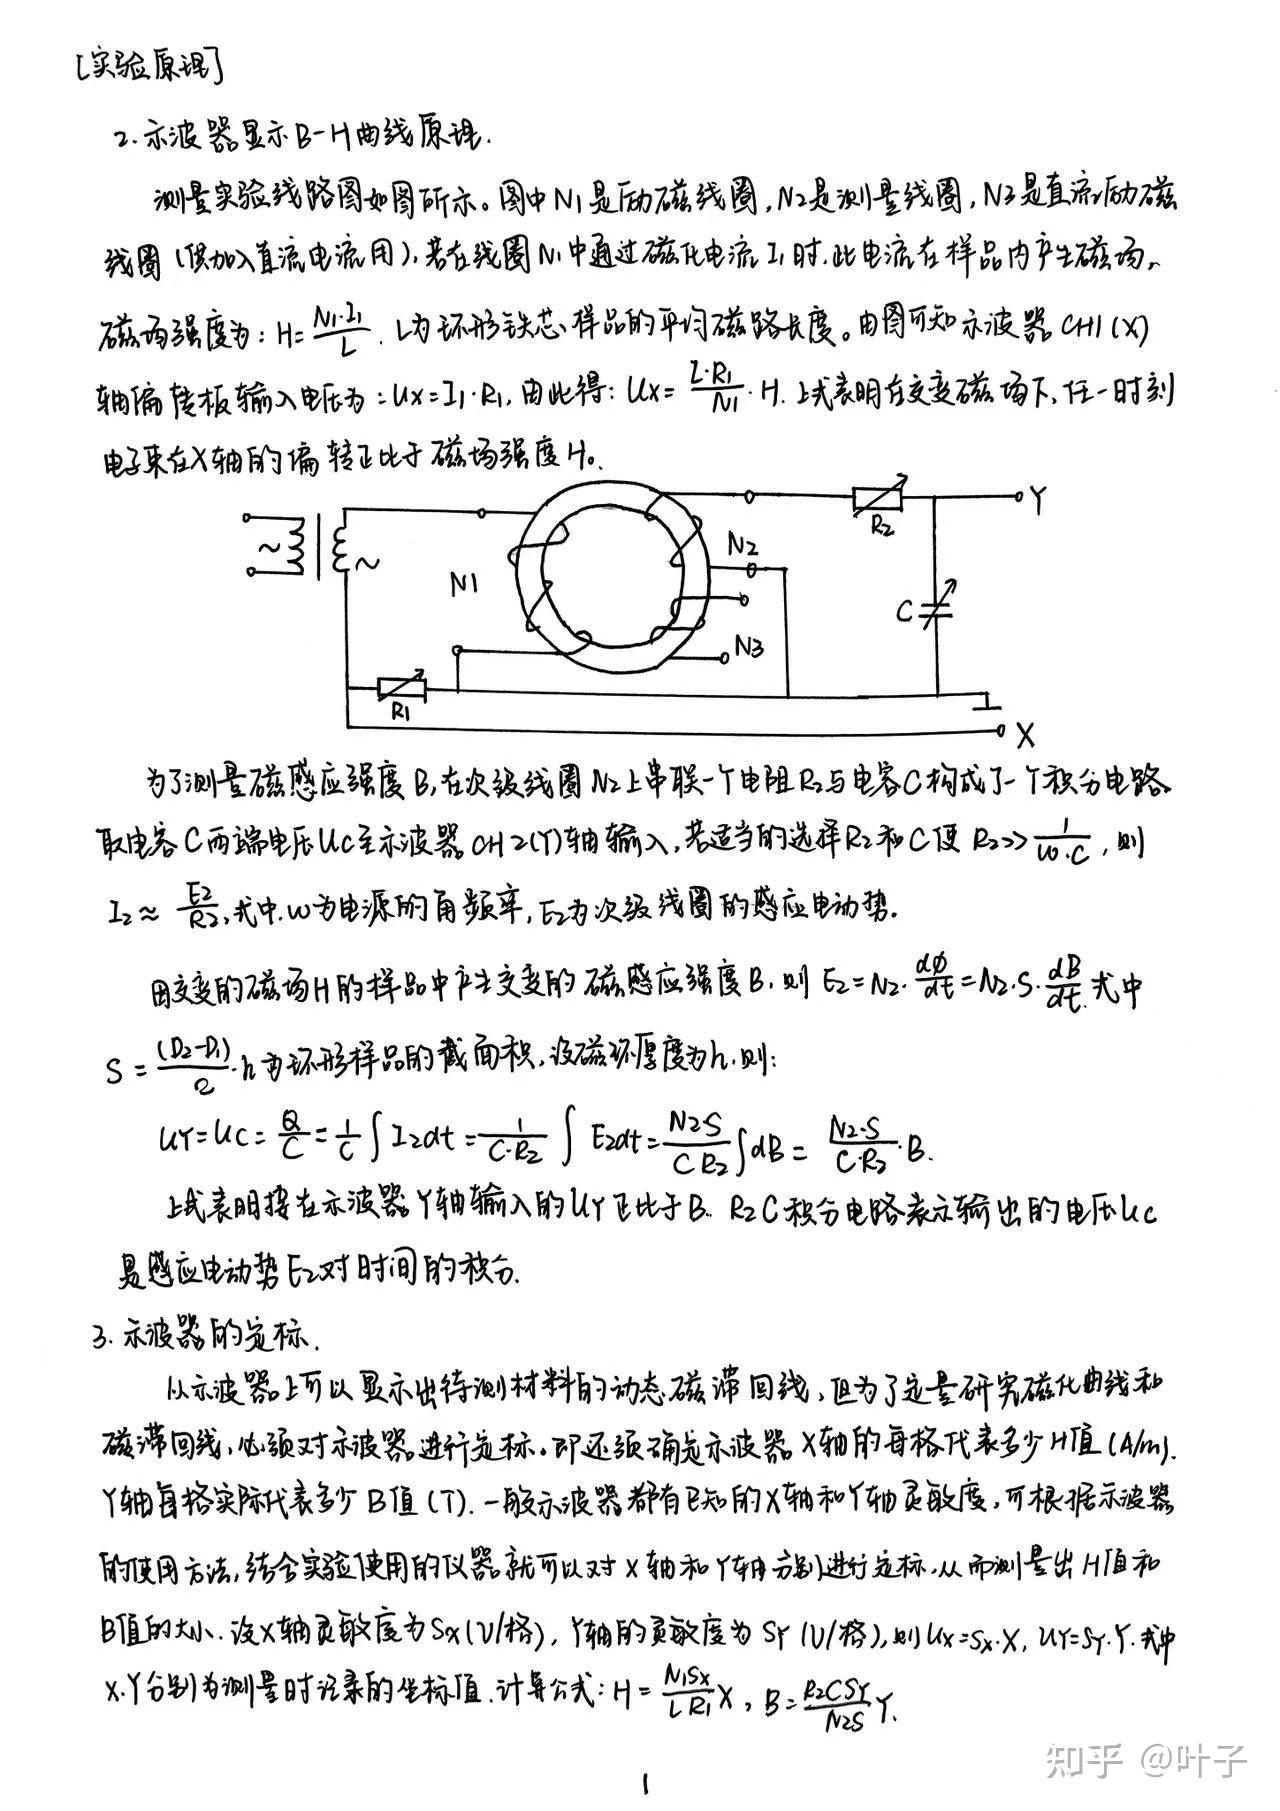 [实验原理]
2.示波器显示B-H曲线原理.
测量实验线路图如图所示。图中N1是励磁线圈,N2是测量线圈,N3是直流励磁
线圈(供加入直流电流用),若在线圈N1中通过磁化电流I1时.此电流在样品内产生磁场,
磁场强度为:H=N1·I1/L . L为环形铁芯样品的平均磁路长度。由图可知示波器CH1(X)
轴偏转板输入电压为:Ux=I1·R1,由此得:Ux=L·R1/N1·H.上式表明在交变磁场下,任一时刻
电子束在X轴的偏转正比于磁场强度H。
~ ~ N1 N2 N3 R1 R2 C Y X
为了测量磁感应强度B,在次级线圈N2上串联一个电阻R2与电容C构成了一个积分电路.
取电容C两端电压Uc至示波器CH2(Y)轴输入,若适当的选择R2和C使R2>>1/ω·C,则
I2≈E2/R2,式中,ω为电源的角频率,E2为次级线圈的感应电动势.
因交变的磁场H的样品中产生交变的磁感应强度B,则E2=N2·dφ/dt=N2·S·dB/dt.式中
S=(D2-D1)/2·h为环形样品的截面积,设磁环厚度为h.则:
UY=UC=Q/C=1/C∫I2dt=1/C·R2∫E2dt=N2·S/CR2∫dB=N2·S/C·R2·B.
上式表明接在示波器Y轴输入的UY正比于B. R2C积分电路表示输出的电压Uc
是感应电动势E2对时间的积分.
3.示波器的定标.
从示波器上可以显示出待测材料的动态磁滞回线,但为了定量研究磁化曲线和
磁滞回线,必须对示波器进行定标。即还须确定示波器X轴的每格代表多少H值(A/m).
Y轴每格实际代表多少B值(T).一般示波器都有已知的X轴和Y轴灵敏度,可根据示波器
的使用方法,结合实验使用的仪器就可以对X轴和Y轴分别进行定标,从而测量出H值和
B值的大小.设X轴灵敏度为Sx(V/格),Y轴的灵敏度为SY(V/格),则Ux=Sx·X,UY=SY·Y.式中
X.Y分别为测量时记录的坐标值.计算公式:H=N1Sx/LR1X,B=R2CSY/N2SY.
知乎 @叶子
1